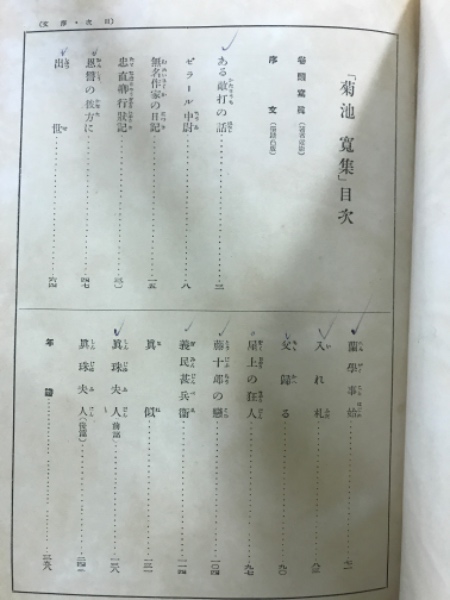 （文序・次目）
「菊池寛集」目次
卷頭寫眞
序文
ある敵打の話……二
ゼラール中尉……八
無名作家の日記……一五
忠直卿行狀記
恩讐の彼方に……四七
出世……六四
蘭學事始……七一
入れ札……八三
父歸る……九〇
屋上の狂人……九七
藤十郎の戀……一〇四
義民甚兵衞……一一四
眞似……一三一
眞珠夫人（前篇）……一三八
眞珠夫人（後篇）……二四二
年譜